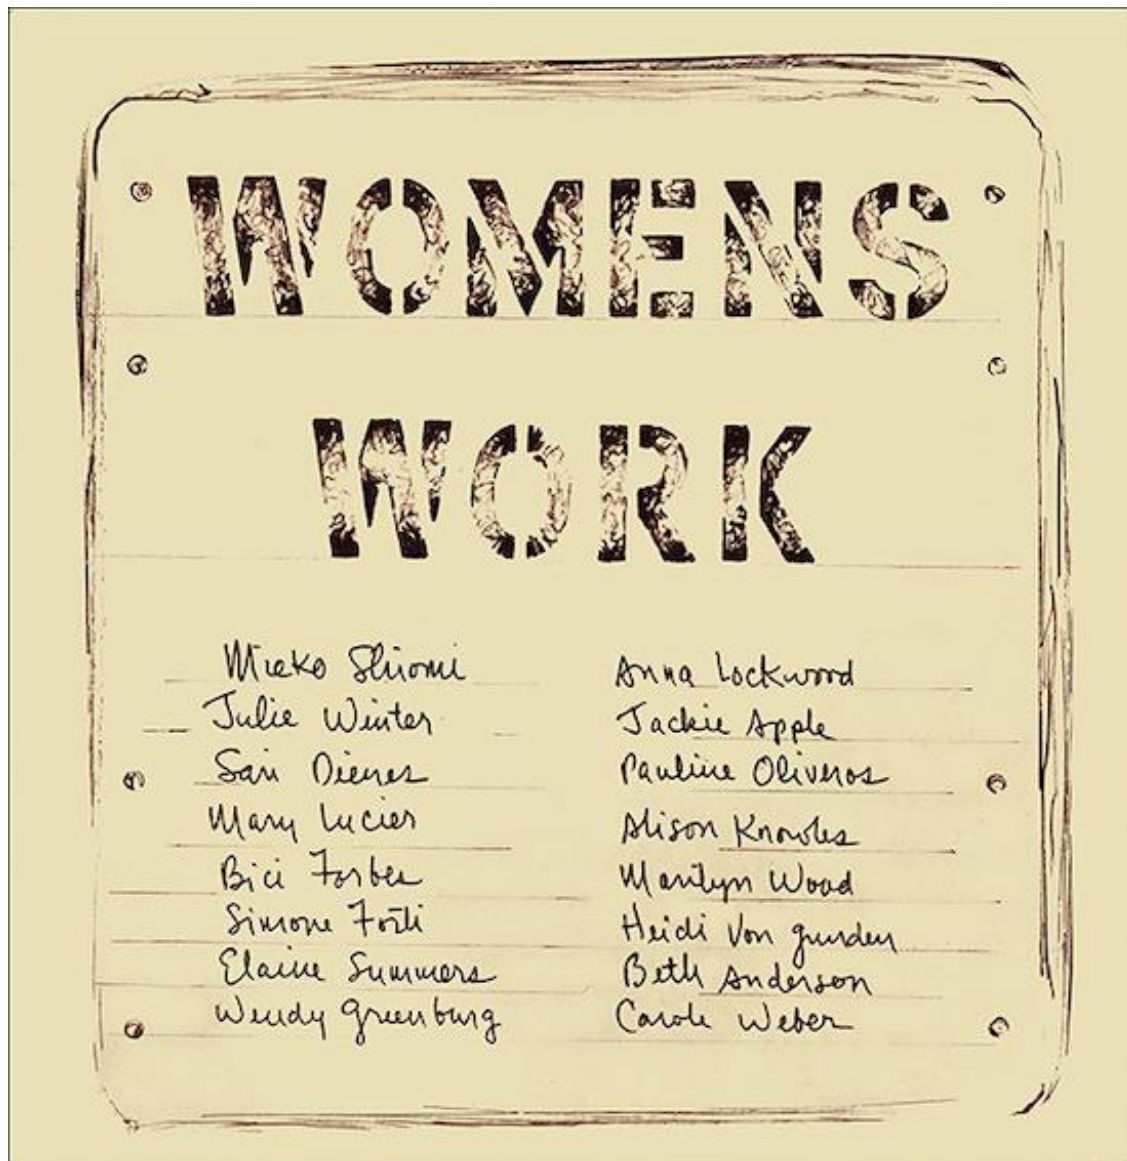 WOMENS
WORK
Mieko Shiomi
Julie Winter
Sari Dienes
Mary Lucier
Bici Forbes
Simone Forti
Elaine Summers
Wendy Greenburg
Anna Lockwood
Jackie Apple
Pauline Oliveros
Alison Knowles
Marilyn Wood
Heidi Von Gunden
Beth Anderson
Carole Weber